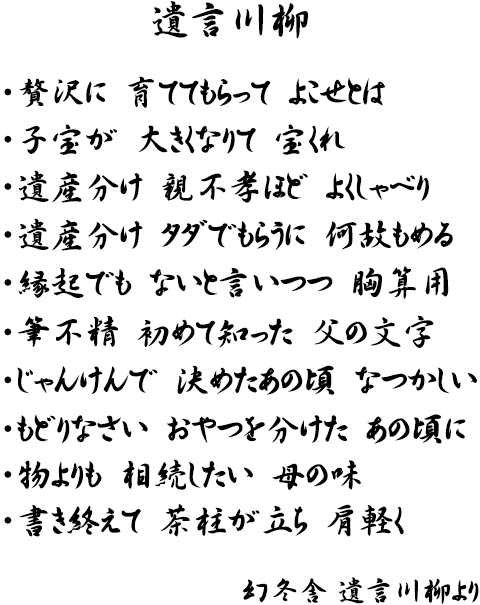 遺言川柳
・贅沢に 育ててもらって よこせとは
・子宝が 大きくなりて 宝くれ
・遺産分け 親不孝ほど よくしゃべり
・遺産分け タダでもらうに 何故もめる
・縁起でも ないと言いつつ 胸算用
・筆不精 初めて知った 父の文字
・じゃんけんで 決めたあの頃 なつかしい
・もどりなさい おやつを分けた あの頃に
・物よりも 相続したい 母の味
・書き終えて 茶柱が立ち 肩軽く
幻冬舎 遺言川柳より